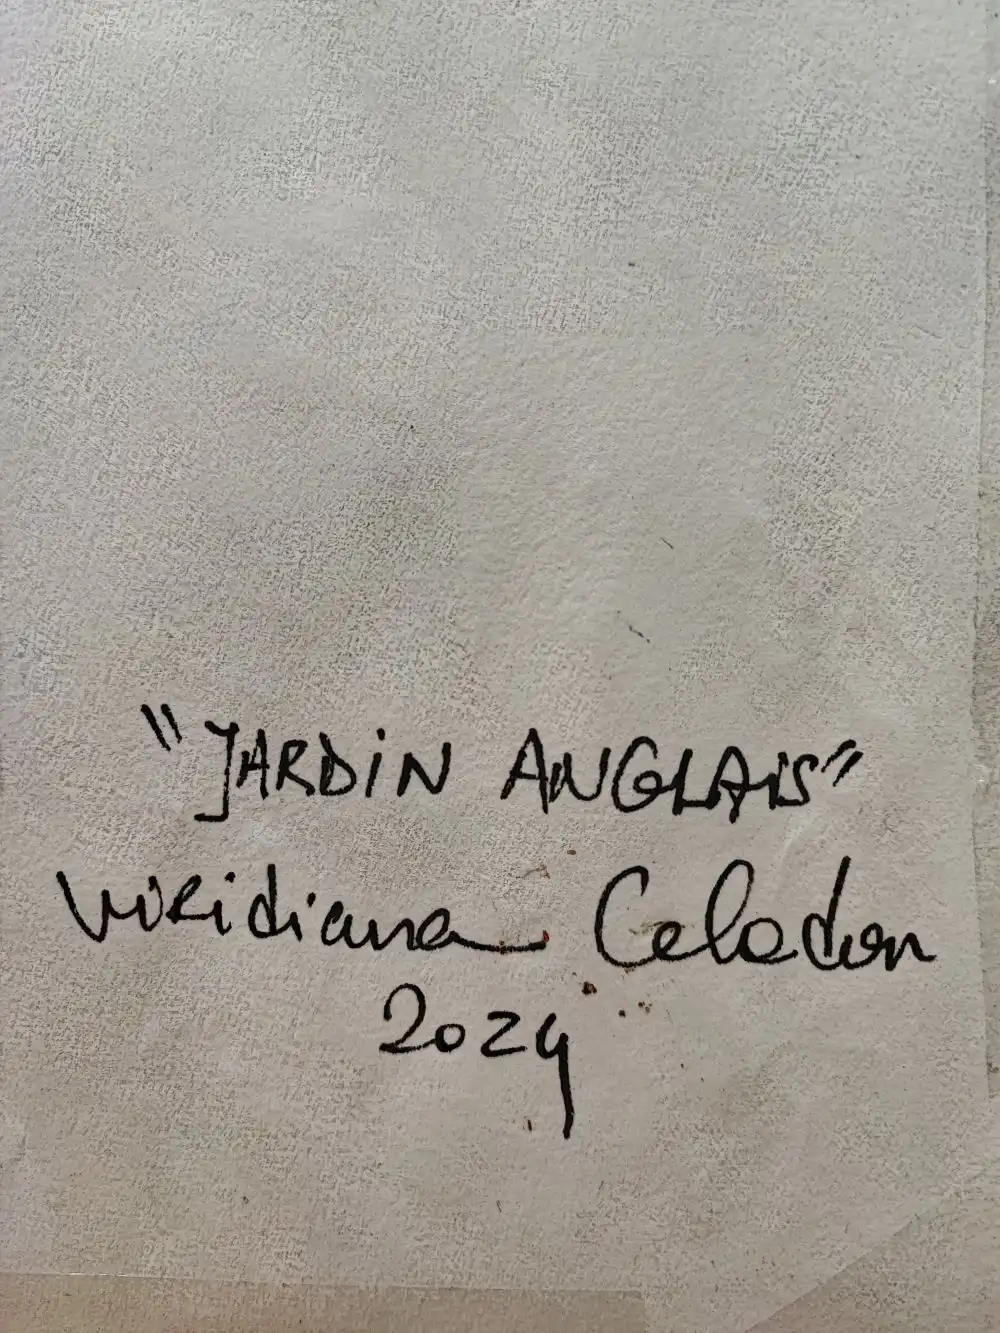 "JARDiN ANGLAIS"
Viridiana Celadon
2024